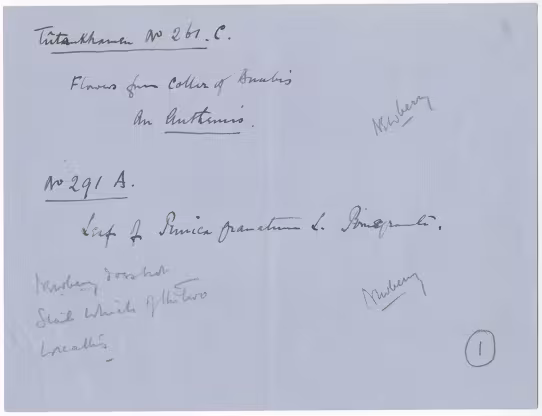 Tutankhamen No 261.C.
Flowers from Collar of Anubis
An Anthemis.
Newberry
No 291 A.
Leaf of Punica granatum L. Pomegranate.
Newberry does not
State which of the two
localities
Newberry
1